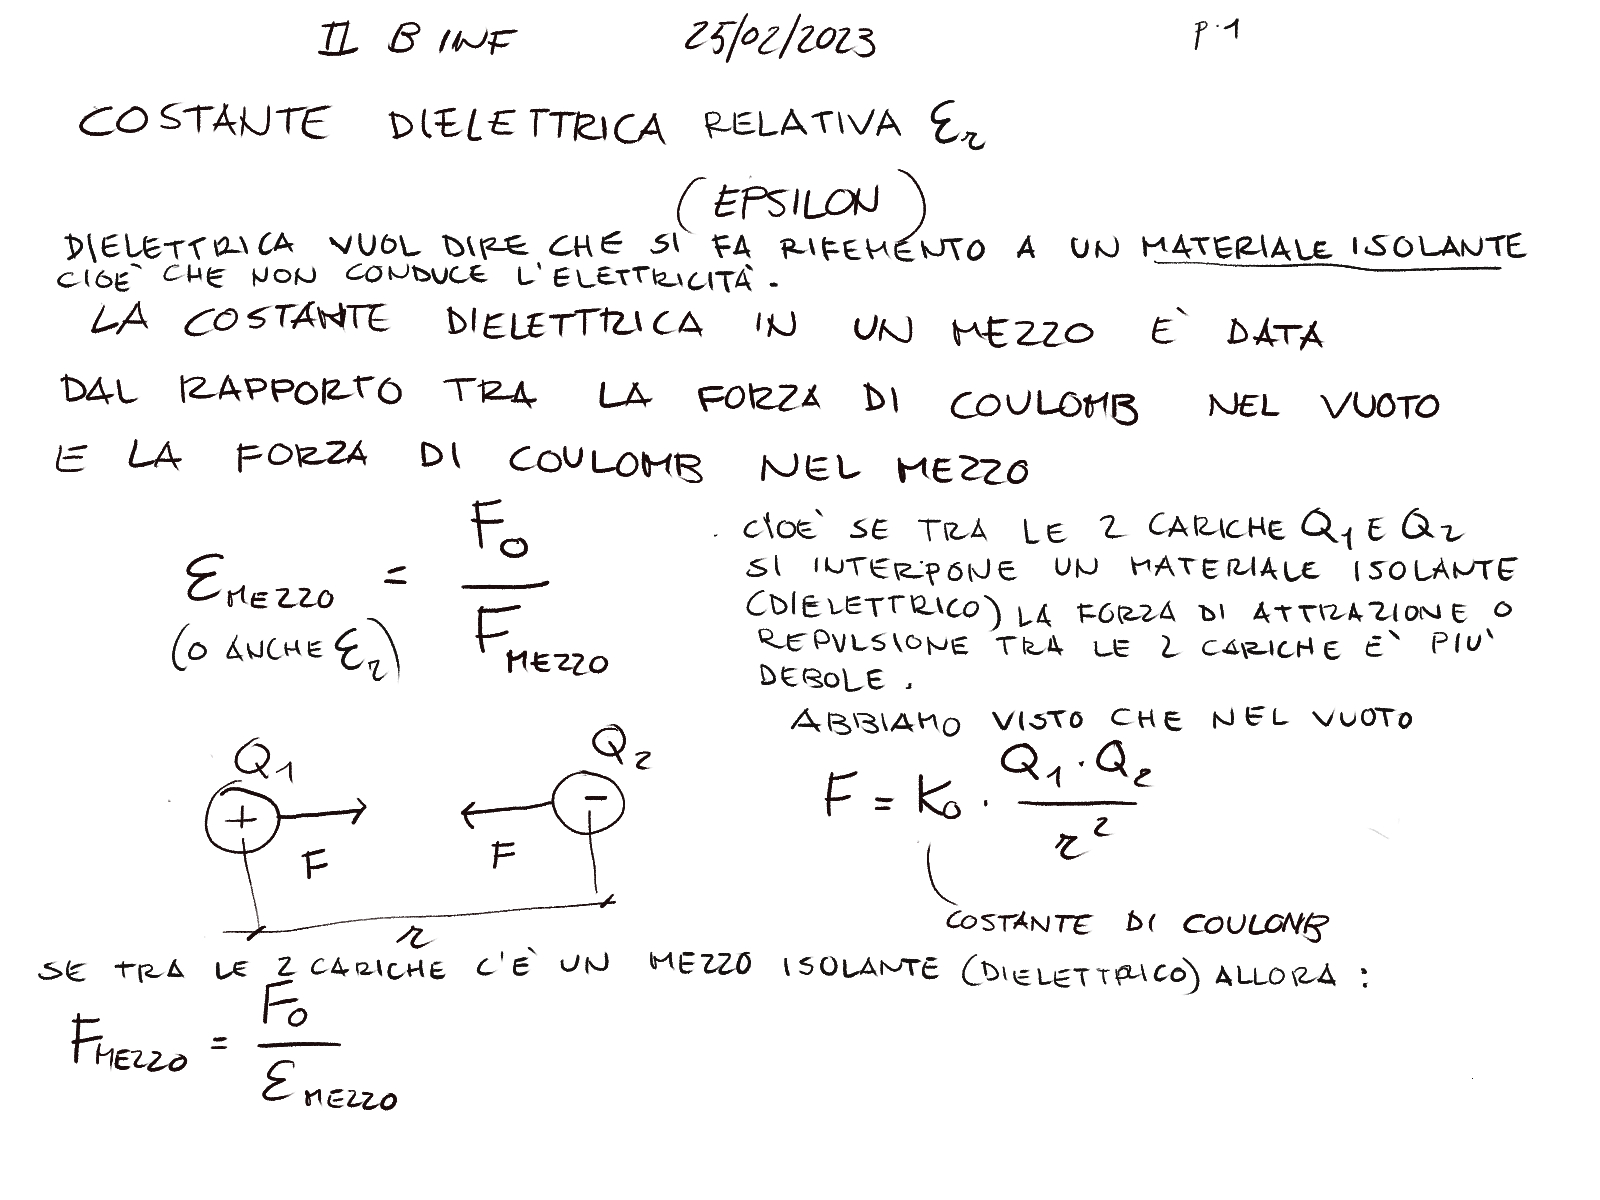 II B INF 25/02/2023 p.1
COSTANTE DIELETTRICA RELATIVA Ɛr
(EPSILON)
DIELETTRICA VUOL DIRE CHE SI FA RIFEMENTO A UN MATERIALE ISOLANTE
CIOE' CHE NON CONDUCE L'ELETTRICITÀ.
LA COSTANTE DIELETTRICA IN UN MEZZO E' DATA
DAL RAPPORTO TRA LA FORZA DI COULOMB NEL VUOTO
E LA FORZA DI COULOMB NEL MEZZO
ƐMEZZO = F0 / FMEZZO
(O ANCHE Ɛr)
CIOE' SE TRA LE 2 CARICHE Q1 E Q2
SI INTERPONE UN MATERIALE ISOLANTE
(DIELETTRICO) LA FORZA DI ATTRAZIONE O
REPULSIONE TRA LE 2 CARICHE E' PIU'
DEBOLE.
ABBIAMO VISTO CHE NEL VUOTO
F = K0 · Q1 · Q2 / r²
COSTANTE DI COULOMB
Q1 Q2
+ -
F F
r
SE TRA LE 2 CARICHE C'È UN MEZZO ISOLANTE (DIELETTRICO) ALLORA:
FMEZZO = F0 / ƐMEZZO